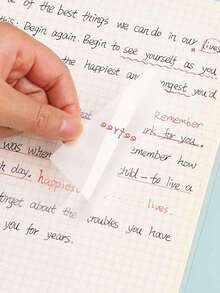 of the best things we can do in our lives
this: Begin again. Begin to see yourself as you
the happiest and
Remember
for you.
was when remember how
day. happiest child - to live a
lives
forget about the troubles you have
you for years.